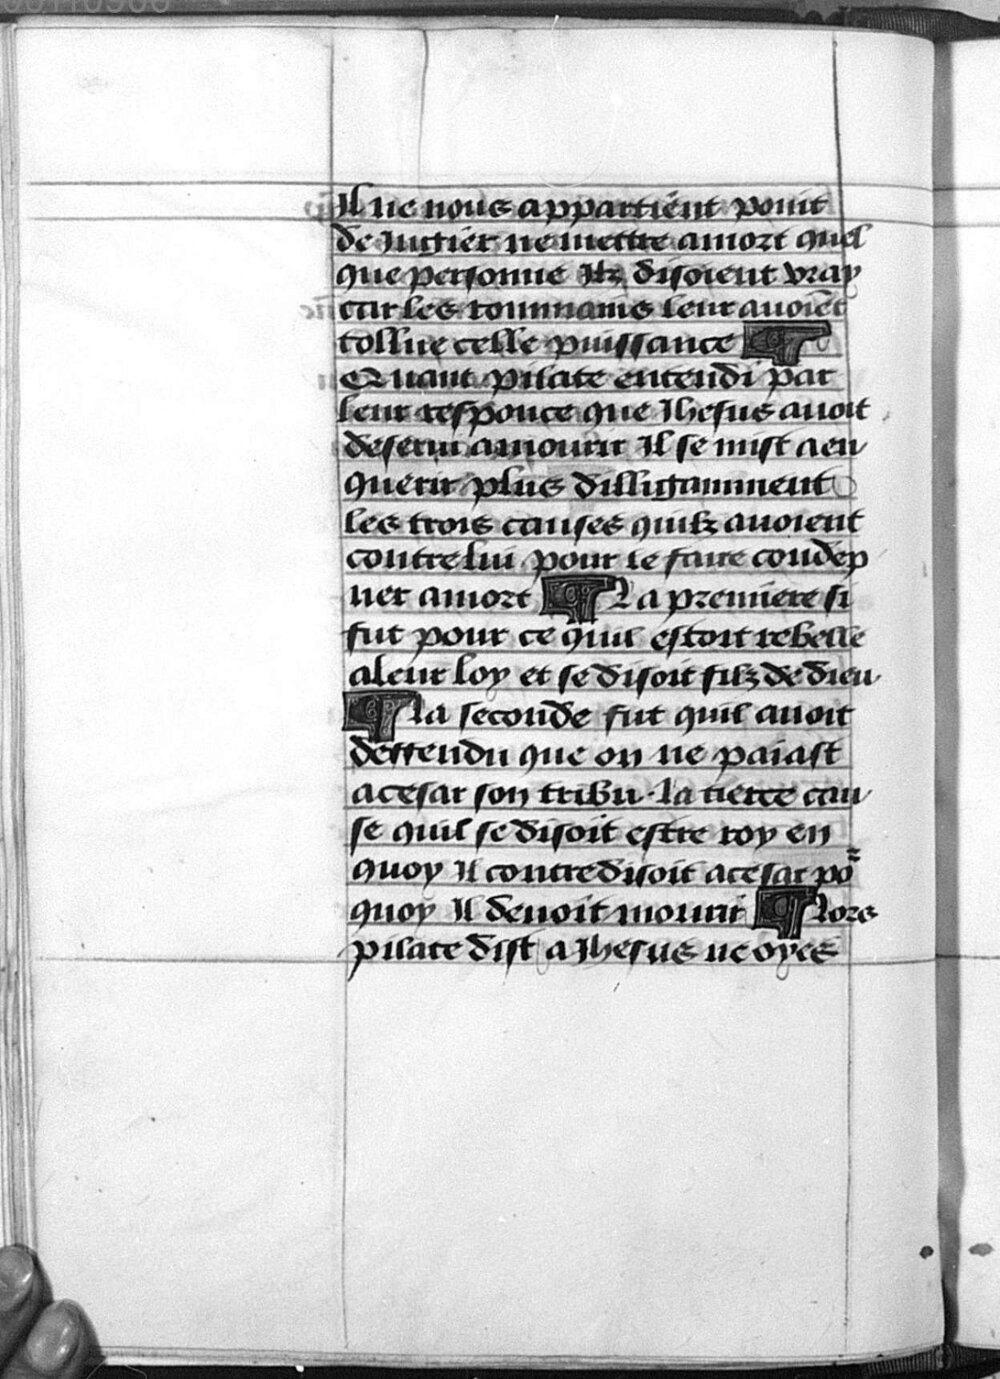 Il ne nous appartient point
de Iugier ne mettre a mort quel
que personne Ilz disoient vray
car les rommains leur auoiēt
tollue celle puissance ¶
Quant pilate entendi par
leur responce que Ihesus auoit
deserui a mourir Il se mist a en
querir plus dilligamment
les trois causes quilz auoient
contre lui pour le faire condēp
ner a mort ¶ La premiere si
fut pour ce quil estoit rebelle
a leur loy et se disoit filz de dieu
¶ la seconde fut quil auoit
deffendu que on ne paiast
a cesar son tribu · la tierce cau
se quil se disoit estre roy en
quoy Il contredisoit a cesar po
quoy Il deuoit mourir ¶ lors
pilate dist a Ihesus ne oyes